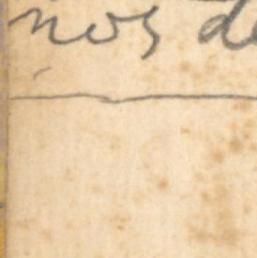 nos de